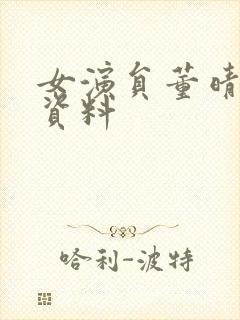 女演員董晴
資料
哈利-波特